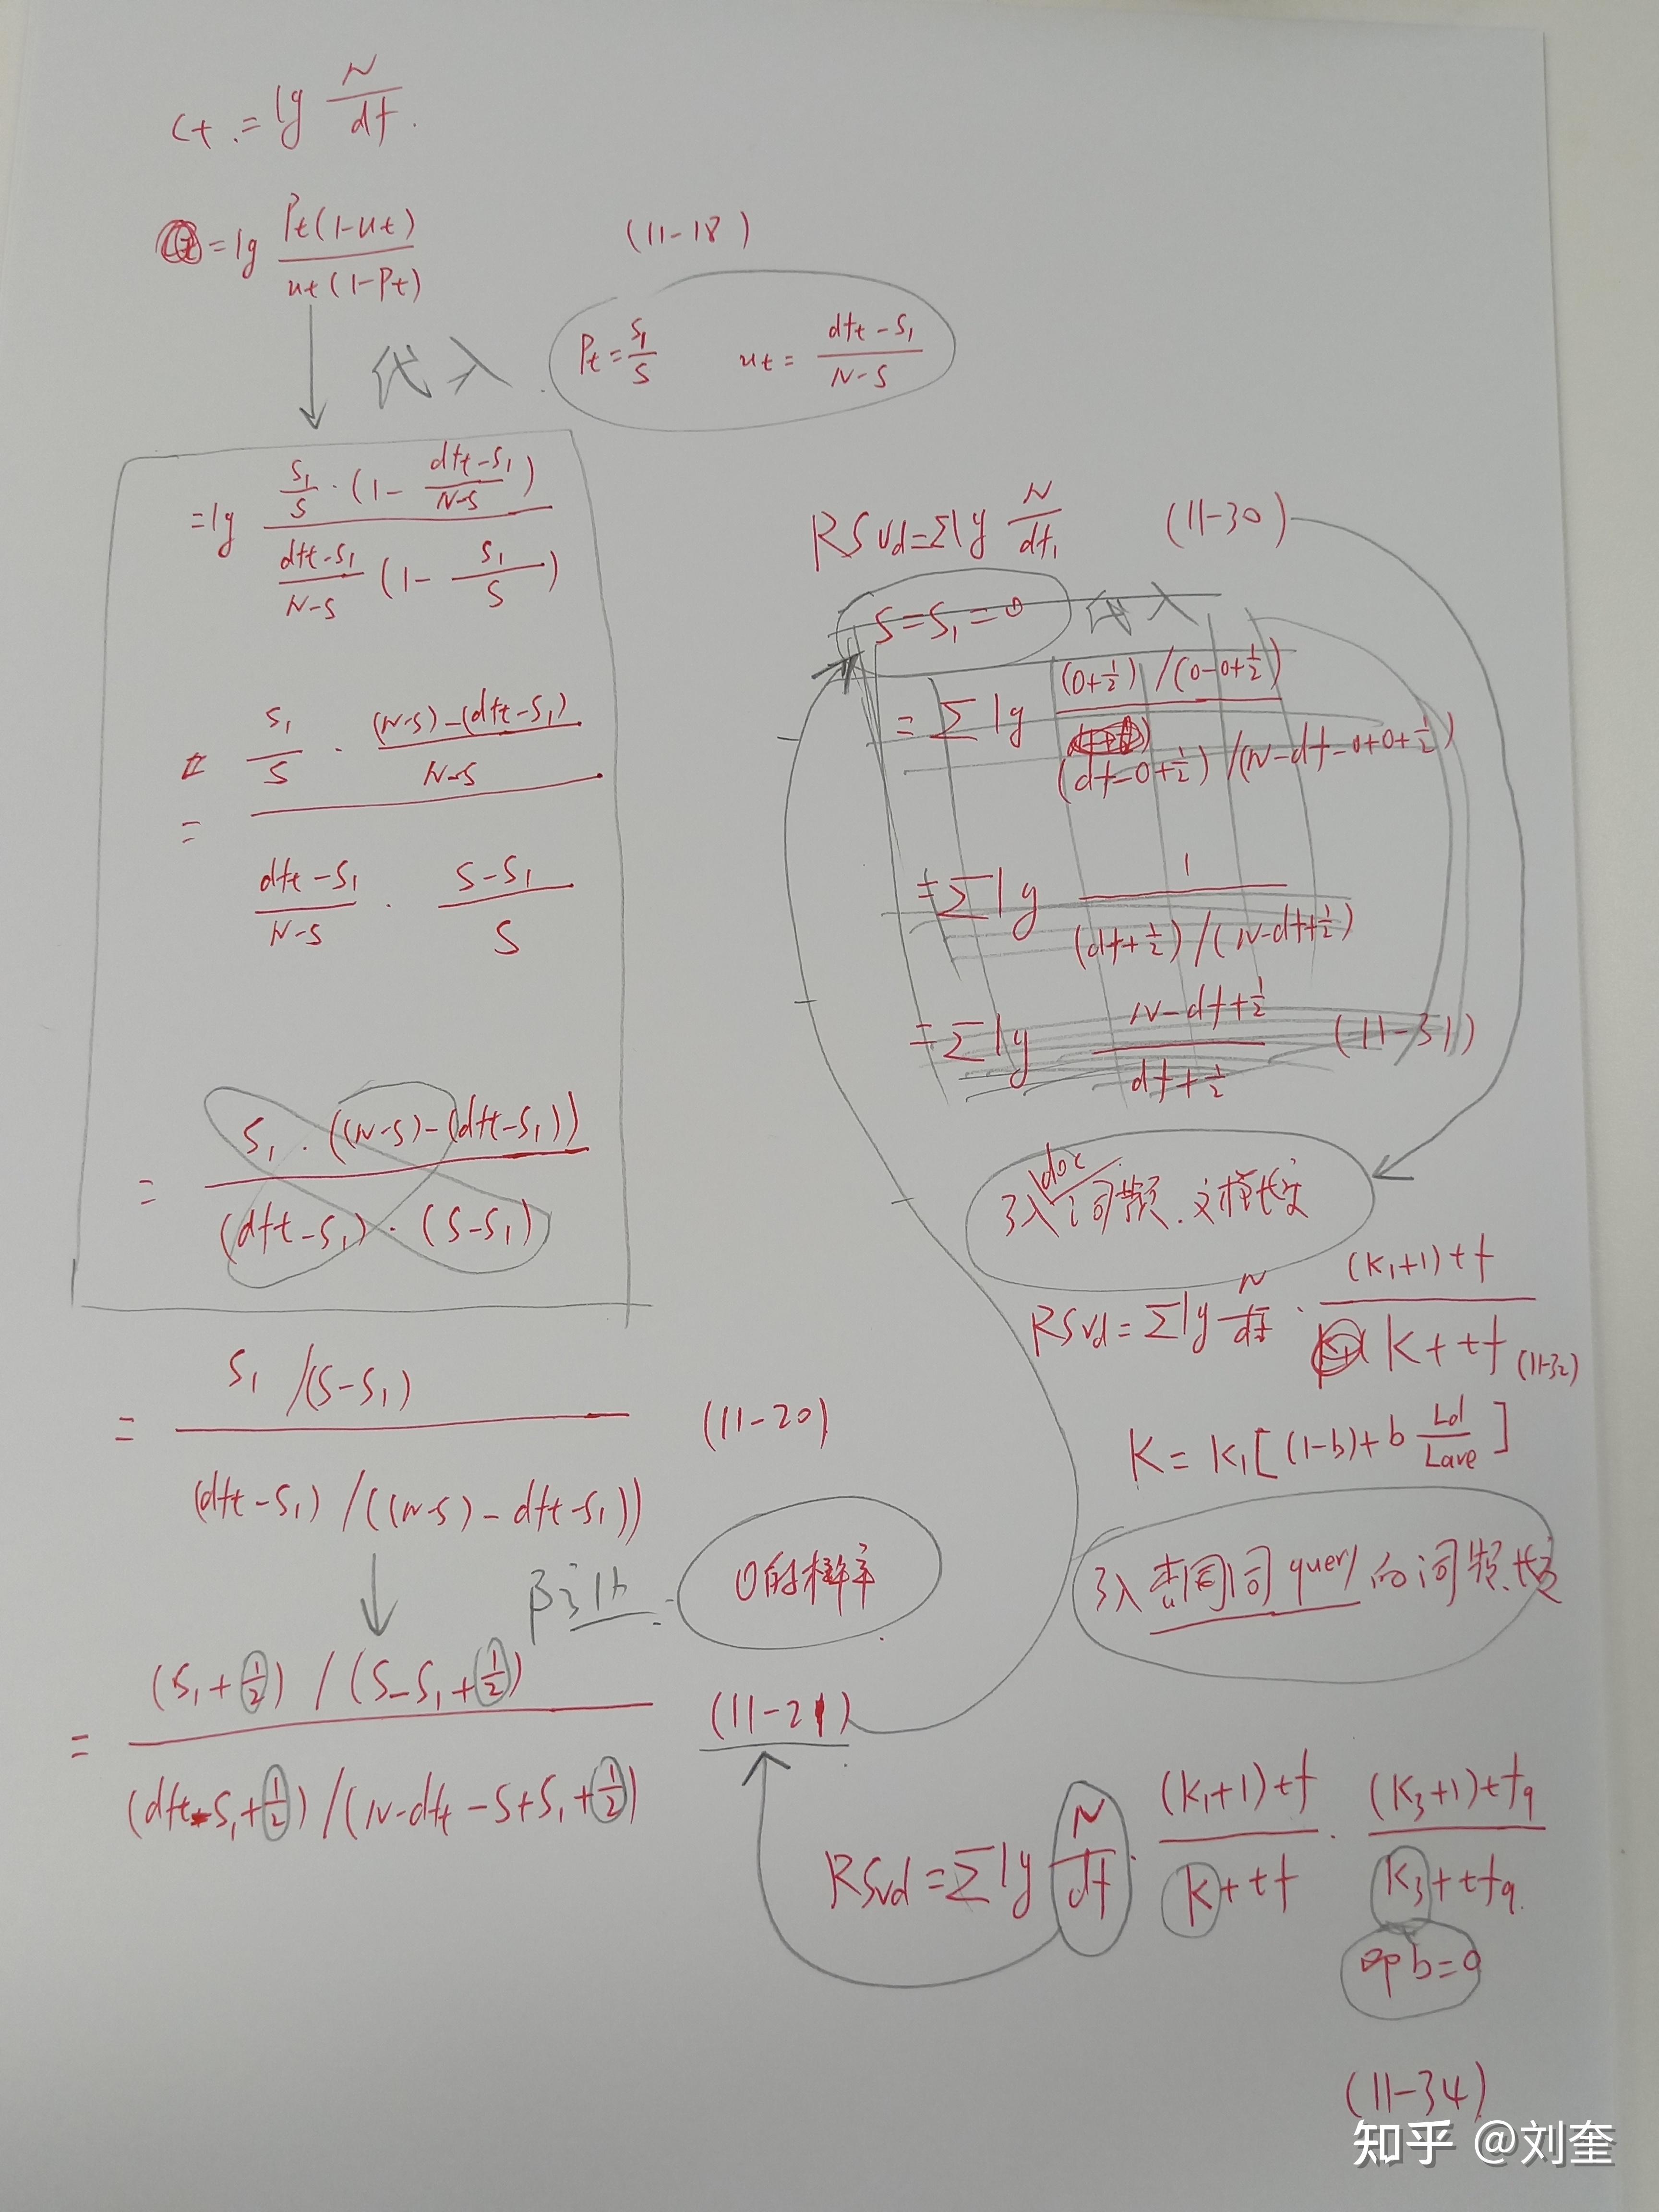 Ct = lg N/df.
= lg Pt(1-ut) / ut(1-Pt) (11-18)
代入 Pt = S₁/S ut = (dft - S₁)/(N-S)
= lg [S₁/S · (1 - (dft-S₁)/(N-S))] / [(dft-S₁)/(N-S) (1 - S₁/S)]
= [S₁/S · ((N-S)-(dft-S₁))/(N-S)] / [(dft-S₁)/(N-S) · (S-S₁)/S]
= S₁·((N-S)-(dft-S₁)) / (dft-S₁)·(S-S₁)
= [S₁/(S-S₁)] / [(dft-S₁)/((N-S)-dft-S₁))] (11-20)
0的概率
= [(S₁+½)/(S-S₁+½)] / [(dft-S₁+½)/(N-dft-S+S₁+½)] (11-21)
RSVd=Σlg N/dft (11-30)
S=S₁=0 代入
= Σ lg [(0+½)/(0-0+½)] / [(df-0+½)/(N-df-0+0+½)]
= Σ lg 1 / [(df+½)/(N-df+½)]
= Σ lg (N-df+½)/(df+½) (11-31)
引入doc词频.文档长度
RSVd=Σlg N/df · (K₁+1)tf / K+tf (11-32)
K= K₁[(1-b)+b Ld/Lave]
引入查询词query的词频.长度
RSVd=Σlg N/df · (K₁+1)tf / K+tf · (K₃+1)tfq / K₃+tfq.
b=0
(11-34)
知乎 @刘奎